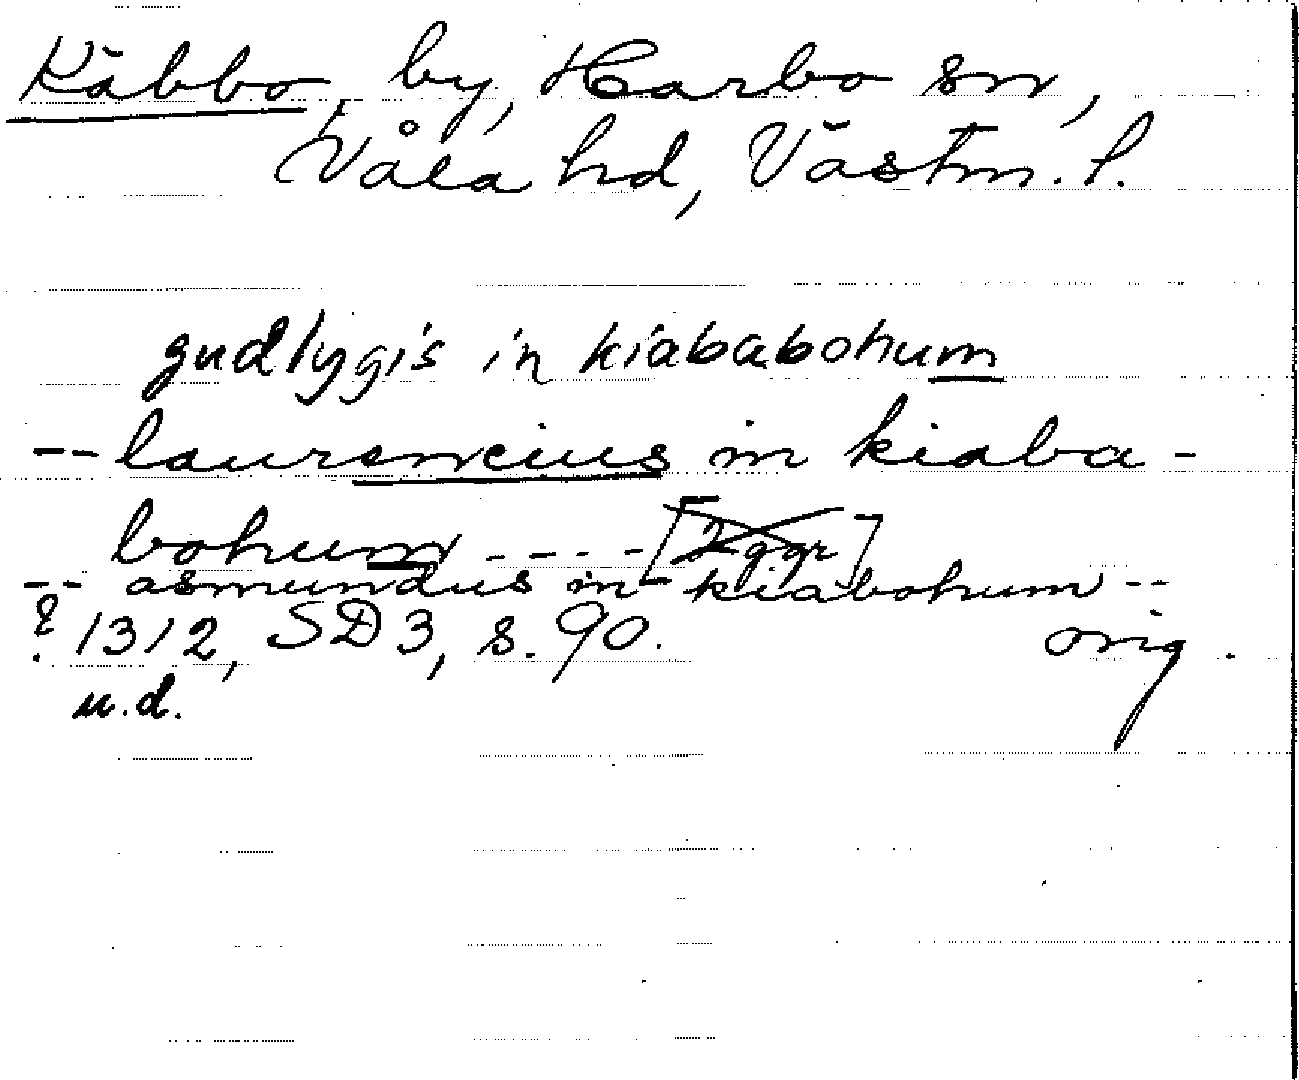 Käbbo, by, Harbo sn,
Våla hd, Västm. l.
gudlygis in kiababohum
-- laurencius in kiaba-
bohum - - - - [2 ggr]
-- asmundus in kiabohum --
? 1312, SD 3, s. 90. orig.
u.d.